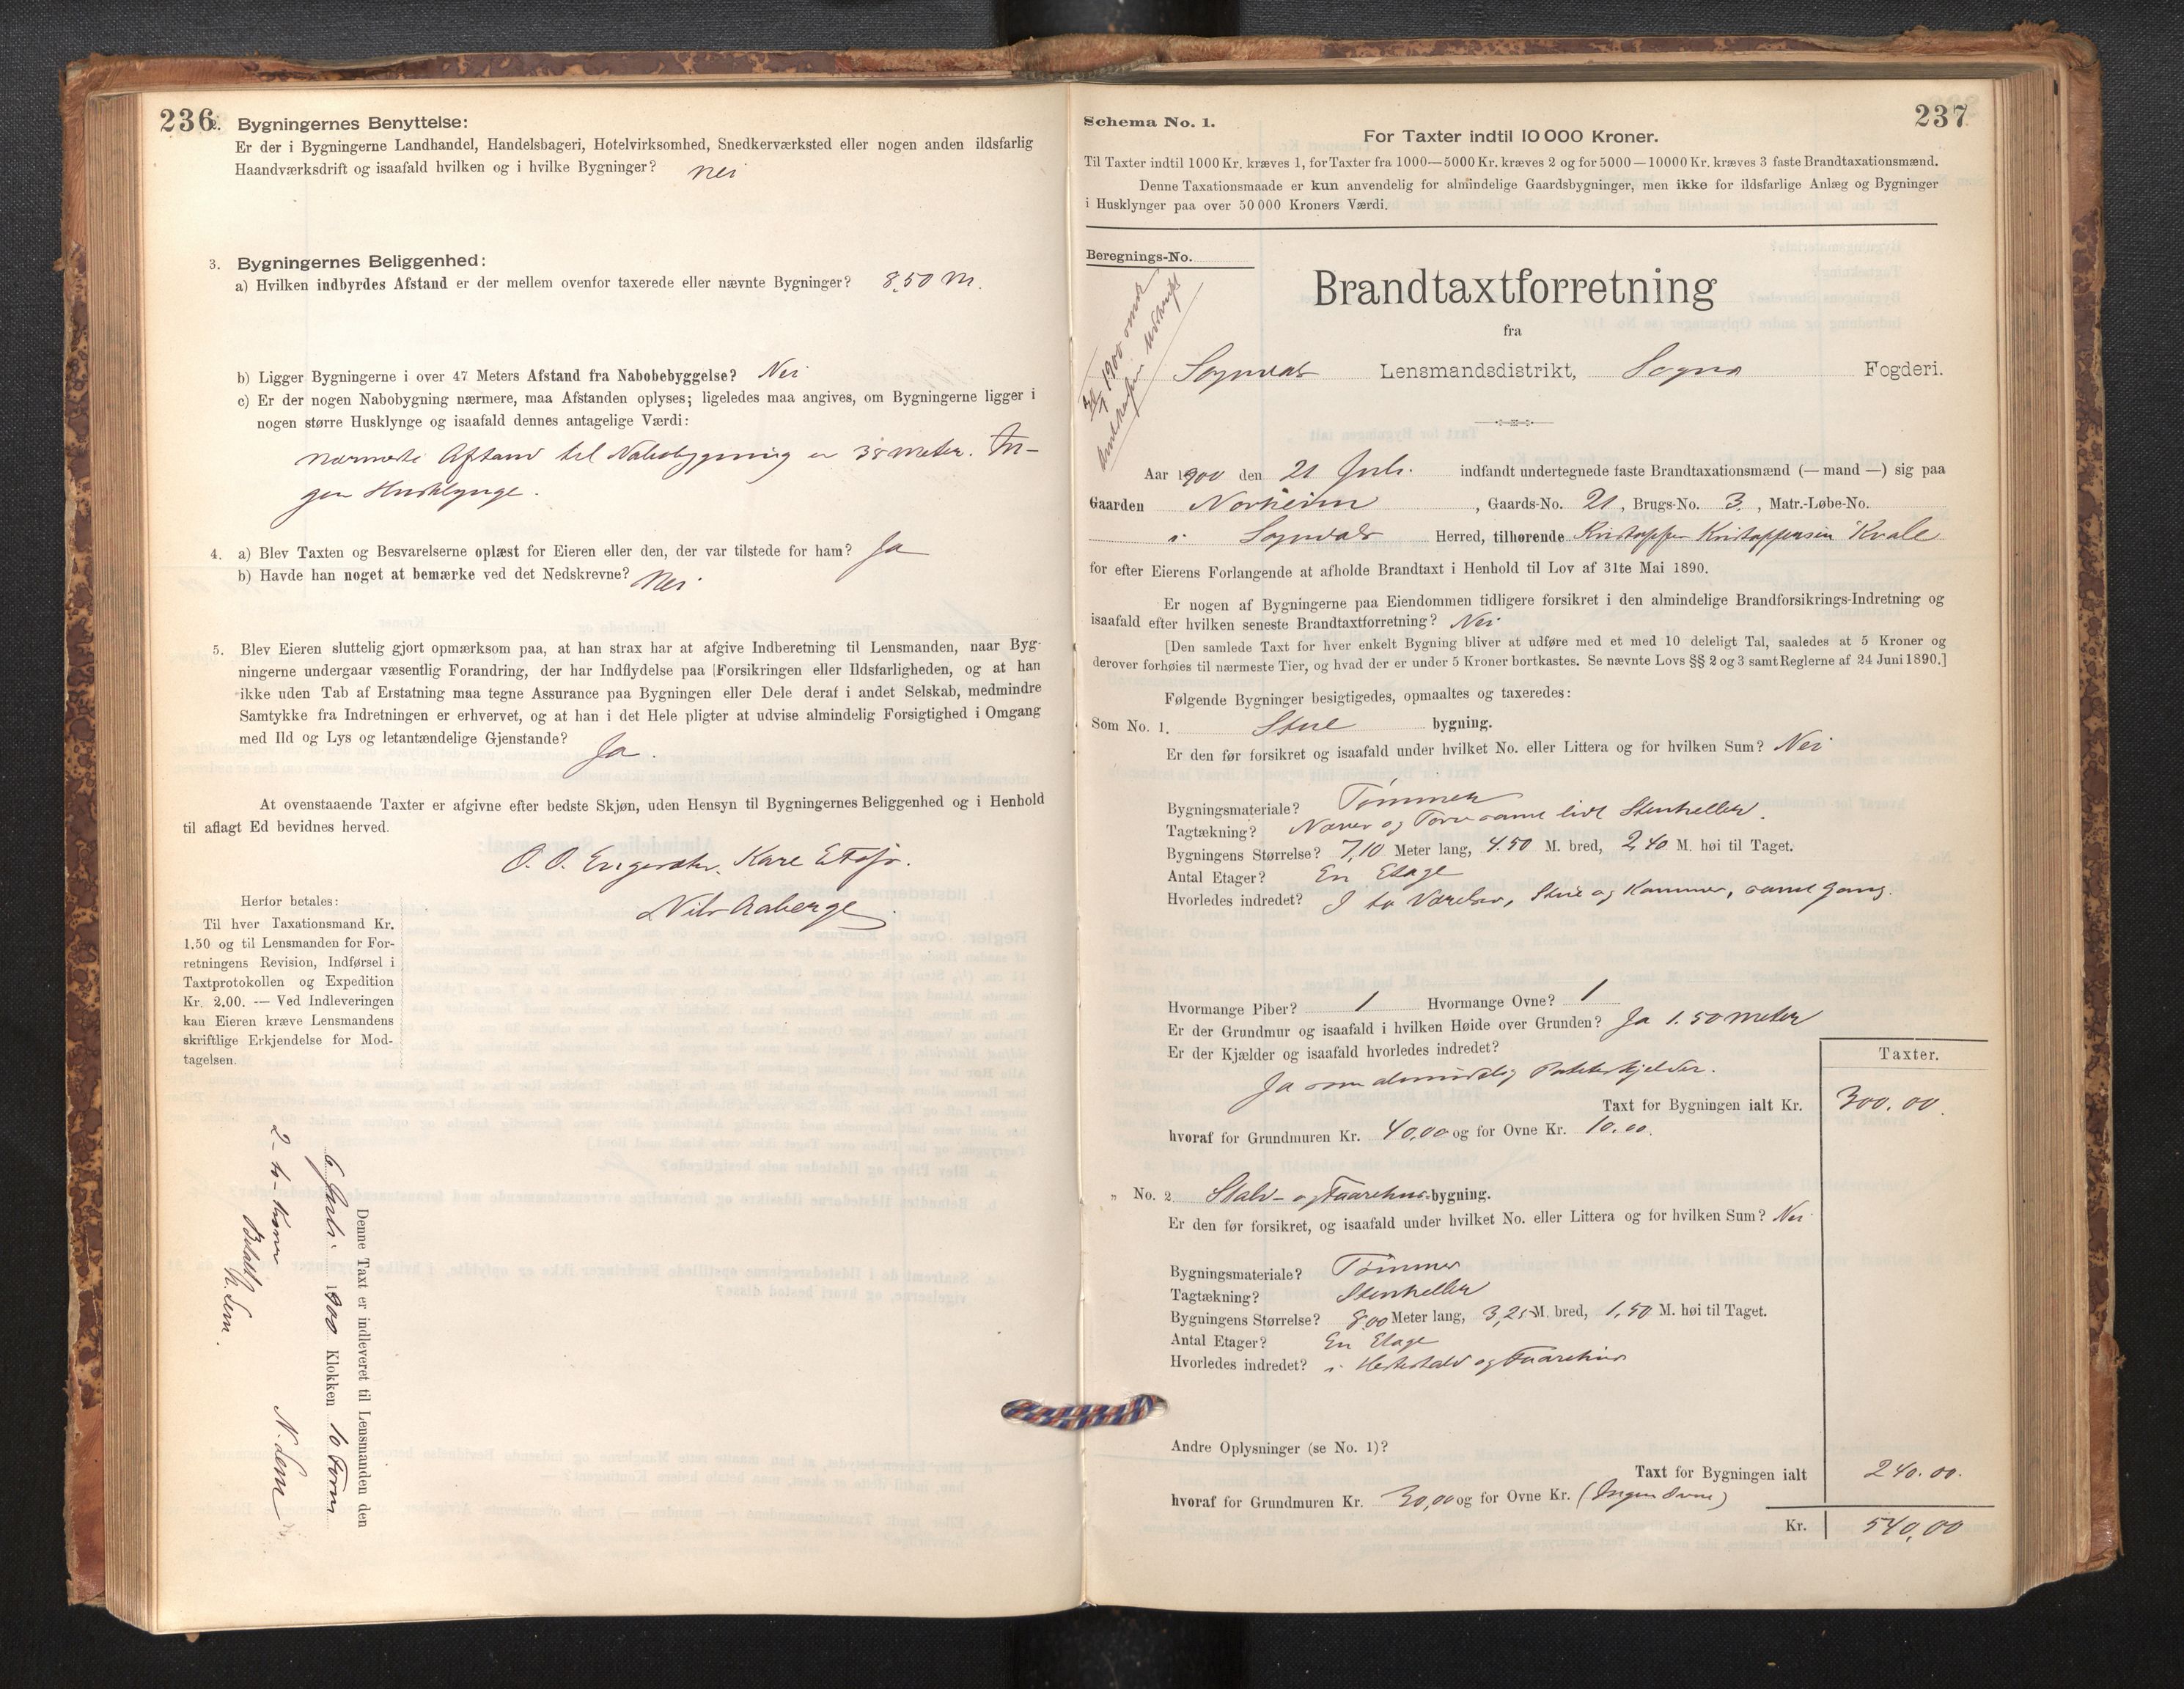 236
2. Bygningernes Benyttelse:
Er der i Bygningerne Landhandel, Handelsbageri, Hotelvirksomhed, Snedkerværksted eller nogen anden ildsfarlig
Haandværksdrift og isaafald hvilken og i hvilke Bygninger? nei
3. Bygningernes Beliggenhed:
a) Hvilken indbyrdes Afstand er der mellem ovenfor taxerede eller nævnte Bygninger? 8,50 M.
b) Ligger Bygningerne i over 47 Meters Afstand fra Nabobebyggelse? Nei
c) Er der nogen Nabobygning nærmere, maa Afstanden oplyses; ligeledes maa angives, om Bygningerne ligger i
nogen større Husklynge og isaafald dennes antagelige Værdi:
nærmeste Afstand til Nabobygning er 38 meter. In-
gen Husklynge.
4. a) Blev Taxten og Besvarelserne oplæst for Eieren eller den, der var tilstede for ham? Ja
b) Havde han noget at bemærke ved det Nedskrevne? Nei
5. Blev Eieren sluttelig gjort opmærksom paa, at han strax har at afgive Indberetning til Lensmanden, naar Byg-
ningerne undergaar væsentlig Forandring, der har Indflydelse paa Forsikringen eller Ildsfarligheden, og at han
ikke uden Tab af Erstatning maa tegne Assurance paa Bygningen eller Dele deraf i andet Selskab, medmindre
Samtykke fra Indretningen er erhvervet, og at han i det Hele pligter at udvise almindelig Forsigtighed i Omgang
med Ild og Lys og letantændelige Gjenstande? Ja.
At ovenstaaende Taxter er afgivne efter bedste Skjøn, uden Hensyn til Bygningernes Beliggenhed og i Henhold
til aflagt Ed bevidnes herved.
O. O. Kare
Nils Aaberge
Herfor betales:
Til hver Taxationsmand Kr.
1.50 og til Lensmanden for For-
retningens Revision, Indførsel i
Taxtprotokollen og Expedition
Kr. 2.00. — Ved Indleveringen
kan Eieren kræve Lensmandens
skriftlige Erkjendelse for Mod-
tagelsen.
Denne Taxt er indleveret til Lensmanden den
6 Juli 1900 Klokken 10 Form
N. Lem
2 - to - Kroner
Betalt
N. Lem.
237
Schema No. 1.
For Taxter indtil 10 000 Kroner.
Til Taxter indtil 1000 Kr. kræves 1, for Taxter fra 1000—5000 Kr. kræves 2 og for 5000—10000 Kr. kræves 3 faste Brandtaxationsmænd.
Denne Taxationsmaade er kun anvendelig for almindelige Gaardsbygninger, men ikke for ildsfarlige Anlæg og Bygninger
i Husklynger paa over 50 000 Kroners Værdi.
Beregnings-No.
1900
Brandtaxtforretning
fra
Sogndals Lensmandsdistrikt, Sogns Fogderi.
Aar 1900 den 21 Juli. indfandt undertegnede faste Brandtaxationsmænd (— mand —) sig paa
Gaarden Norheim, Gaards-No. 21, Brugs-No. 3., Matr.-Løbe-No.
i Sogndals Herred, tilhørende Kristoffer Kristoffersen Kvale
for efter Eierens Forlangende at afholde Brandtaxt i Henhold til Lov af 31te Mai 1890.
Er nogen af Bygningerne paa Eiendommen tidligere forsikret i den almindelige Brandforsikrings-Indretning og
isaafald efter hvilken seneste Brandtaxtforretning? Nei
[Den samlede Taxt for hver enkelt Bygning bliver at udføre med et med 10 deleligt Tal, saaledes at 5 Kroner og
derover forhøies til nærmeste Tier, og hvad der er under 5 Kroner bortkastes. Se nævnte Lovs §§ 2 og 3 samt Reglerne af 24 Juni 1890.]
Følgende Bygninger besigtigedes, opmaaltes og taxeredes:
Som No. 1. Stue bygning.
Er den før forsikret og isaafald under hvilket No. eller Littera og for hvilken Sum? Nei
Bygningsmateriale? Tømmer
Tagtækning? Næver og Torv samt lidt Stenheller.
Bygningens Størrelse? 7,10 Meter lang, 4.50 M. bred, 2,40 M. høi til Taget.
Antal Etager? En Etage
Hvorledes indredet? I to Værelser, Stue og Kammer, samt Gang.
Hvormange Piber? 1 Hvormange Ovne? 1
Er der Grundmur og isaafald i hvilken Høide over Grunden? Ja 1.50 meter
Er der Kjælder og isaafald hvorledes indredet?
Ja som almindelig Potetkjelder.
Taxter.
Taxt for Bygningen ialt Kr. 300.00.
hvoraf for Grundmuren Kr. 40,00 og for Ovne Kr. 10.00.
„ No. 2 Stald- og Faarehus- bygning.
Er den før forsikret, og isaafald under hvilket No. eller Littera og for hvilken Sum? Nei
Bygningsmateriale? Tømmer
Tagtækning? Stenheller
Bygningens Størrelse? 8,00 Meter lang, 3,25 M. bred, 1,50 M. høi til Taget.
Antal Etager? En Etage
Hvorledes indredet? i Hestestald og Faarehus
Andre Oplysninger (se No. 1)?
Taxt for Bygningen ialt 240.00.
hvoraf for Grundmuren Kr. 30,00 og for Ovne Kr. (Ingen Ovne)
Kr. 540,00